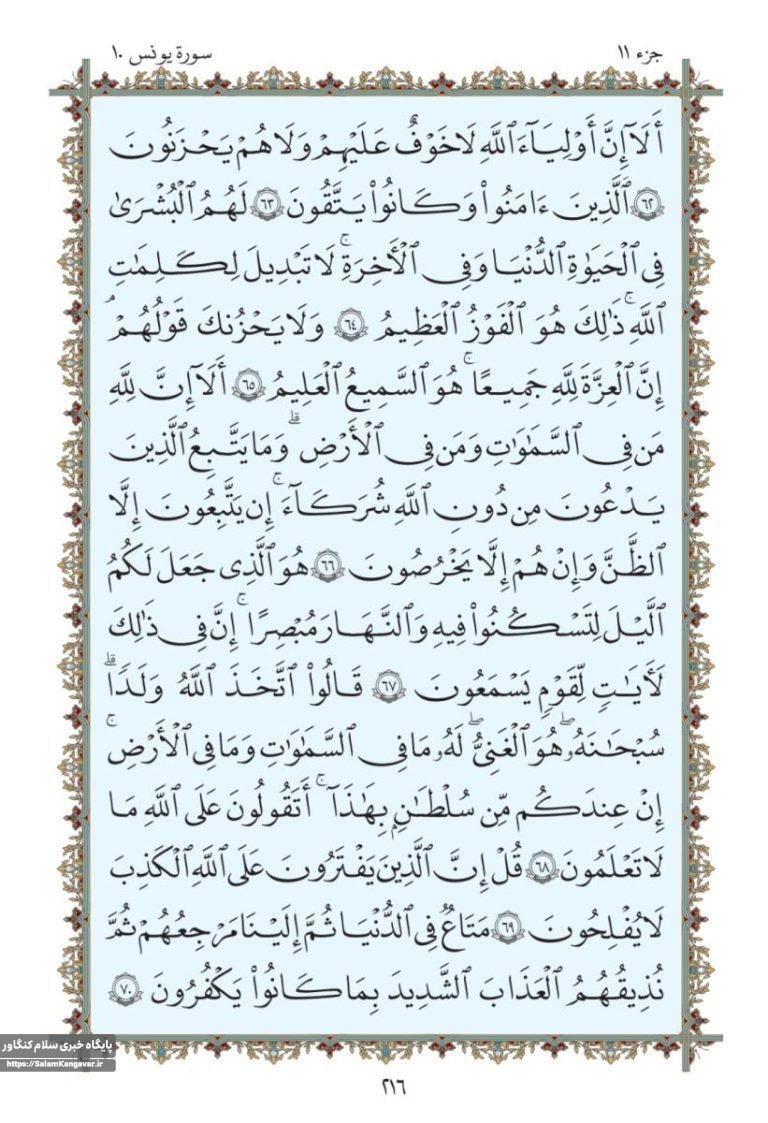 جزء ١١
سورة يونس ١٠
أَلَآ إِنَّ أَوْلِيَآءَ ٱللَّهِ لَا خَوْفٌ عَلَيْهِمْ وَلَا هُمْ يَحْزَنُونَ
٦٢ ٱلَّذِينَ ءَامَنُوا۟ وَكَانُوا۟ يَتَّقُونَ ٦٣ لَهُمُ ٱلْبُشْرَىٰ
فِى ٱلْحَيَوٰةِ ٱلدُّنْيَا وَفِى ٱلْأَخِرَةِ ۚ لَا تَبْدِيلَ لِكَلِمَـٰتِ
ٱللَّهِ ۚ ذَٰلِكَ هُوَ ٱلْفَوْزُ ٱلْعَظِيمُ ٦٤ وَلَا يَحْزُنكَ قَوْلُهُمْ ۘ
إِنَّ ٱلْعِزَّةَ لِلَّهِ جَمِيعًا ۚ هُوَ ٱلسَّمِيعُ ٱلْعَلِيمُ ٦٥ أَلَآ إِنَّ لِلَّهِ
مَن فِى ٱلسَّمَـٰوَٰتِ وَمَن فِى ٱلْأَرْضِ ۗ وَمَا يَتَّبِعُ ٱلَّذِينَ
يَدْعُونَ مِن دُونِ ٱللَّهِ شُرَكَآءَ ۚ إِن يَتَّبِعُونَ إِلَّا
ٱلظَّنَّ وَإِنْ هُمْ إِلَّا يَخْرُصُونَ ٦٦ هُوَ ٱلَّذِى جَعَلَ لَكُمُ
ٱلَّيْلَ لِتَسْكُنُوا۟ فِيهِ وَٱلنَّهَارَ مُبْصِرًا ۚ إِنَّ فِى ذَٰلِكَ
لَـَٔايَـٰتٍ لِّقَوْمٍ يَسْمَعُونَ ٦٧ قَالُوا۟ ٱتَّخَذَ ٱللَّهُ وَلَدًا ۗ
سُبْحَـٰنَهُۥ ۖ هُوَ ٱلْغَنِىُّ ۖ لَهُۥ مَا فِى ٱلسَّمَـٰوَٰتِ وَمَا فِى ٱلْأَرْضِ ۚ
إِنْ عِندَكُم مِّن سُلْطَـٰنٍۭ بِهَـٰذَآ ۚ أَتَقُولُونَ عَلَى ٱللَّهِ مَا
لَا تَعْلَمُونَ ٦٨ قُلْ إِنَّ ٱلَّذِينَ يَفْتَرُونَ عَلَى ٱللَّهِ ٱلْكَذِبَ
لَا يُفْلِحُونَ ٦٩ مَتَـٰعٌ فِى ٱلدُّنْيَا ثُمَّ إِلَيْنَا مَرْجِعُهُمْ ثُمَّ
نُذِيقُهُمُ ٱلْعَذَابَ ٱلشَّدِيدَ بِمَا كَانُوا۟ يَكْفُرُونَ ٧٠
پایگاه خبری سلام کنگاور
https://SalamKangavar.ir
٢١٦